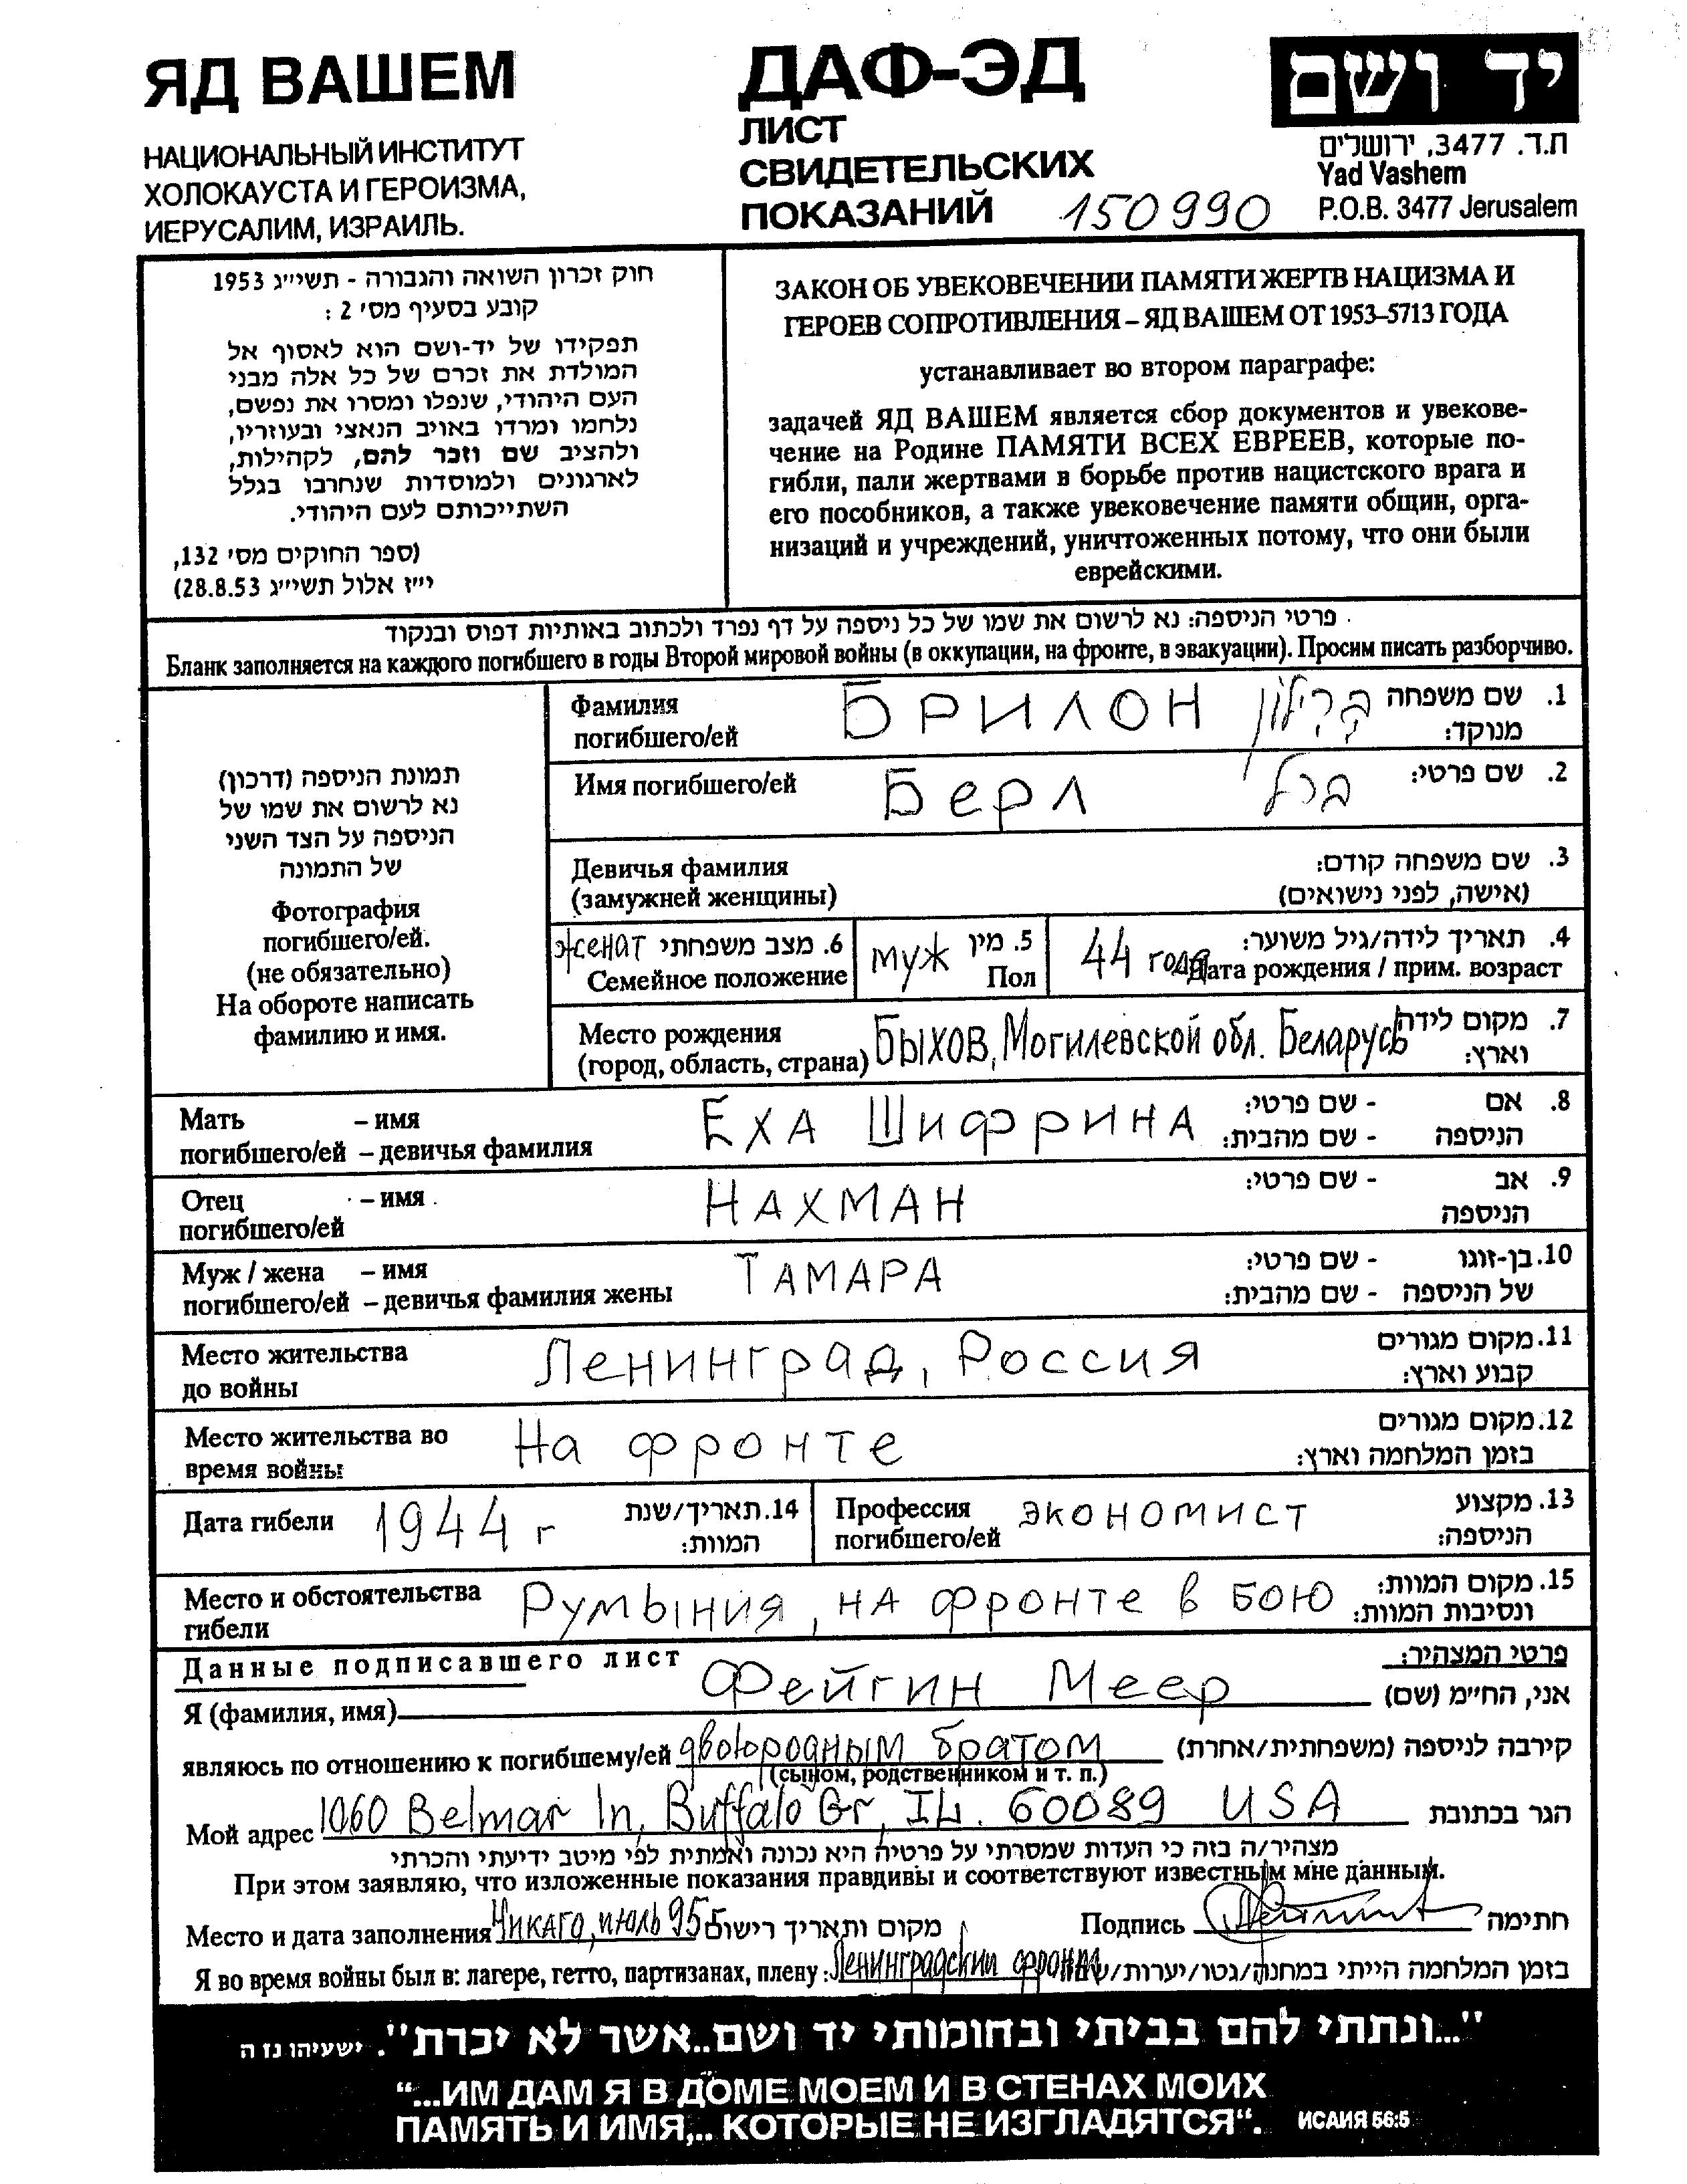 ЯД ВАШЕМ
НАЦИОНАЛЬНЫЙ ИНСТИТУТ
ХОЛОКАУСТА И ГЕРОИЗМА,
ИЕРУСАЛИМ, ИЗРАИЛЬ.
ДАФ-ЭД
ЛИСТ
СВИДЕТЕЛЬСКИХ
ПОКАЗАНИЙ 150990
יד ושם
ת.ד. 3477, ירושלים
Yad Vashem
P.O.B. 3477 Jerusalem
חוק זכרון השואה והגבורה - תשי״ג 1953
קובע בסעיף מס׳ 2 :
תפקידו של יד-ושם הוא לאסוף אל
המולדת את זכרם של כל אלה מבני
העם היהודי, שנפלו ומסרו את נפשם,
נלחמו ומרדו באויב הנאצי ובעוזריו,
ולהציב שם וזכר להם, לקהילות,
לארגונים ולמוסדות שנחרבו בגלל
השתייכותם לעם היהודי.
(ספר החוקים מס׳ 132,
י״ז אלול תשי״ג 28.8.53)
ЗАКОН ОБ УВЕКОВЕЧЕНИИ ПАМЯТИ ЖЕРТВ НАЦИЗМА И
ГЕРОЕВ СОПРОТИВЛЕНИЯ – ЯД ВАШЕМ ОТ 1953–5713 ГОДА
устанавливает во втором параграфе:
задачей ЯД ВАШЕМ является сбор документов и увекове-
чение на Родине ПАМЯТИ ВСЕХ ЕВРЕЕВ, которые по-
гибли, пали жертвами в борьбе против нацистского врага и
его пособников, а также увековечение памяти общин, орга-
низаций и учреждений, уничтоженных потому, что они были
еврейскими.
פרטי הניספה: נא לרשום את שמו של כל ניספה על דף נפרד ולכתוב באותיות דפוס ובנקוד
Бланк заполняется на каждого погибшего в годы Второй мировой войны (в оккупации, на фронте, в эвакуации). Просим писать разборчиво.
תמונת הניספה (דרכון)
נא לרשום את שמו של
הניספה על הצד השני
של התמונה
Фотография
погибшего/ей.
(не обязательно)
На обороте написать
фамилию и имя.
Фамилия БРИЛОН ברילון 1. שם משפחה
погибшего/ей מנוקד:
Имя погибшего/ей Берл ברל 2. שם פרטי:
Девичья фамилия 3. שם משפחה קודם:
(замужней женщины) (אישה, לפני נישואים)
женат 6. מצב משפחתי
Семейное положение
муж 5. מין
Пол
44 года 4. תאריך לידה/גיל משוער:
Дата рождения / прим. возраст
Место рождения БЫХОВ, Могилевской обл. Беларусь 7. מקום לידה
(город, область, страна) וארץ:
Мать – имя ЕХА ШИФРИНА 8. אם - שם פרטי:
погибшего/ей – девичья фамилия הניספה - שם מהבית:
Отец – имя НАХМАН 9. אב - שם פרטי:
погибшего/ей הניספה
Муж / жена – имя ТАМАРА 10. בן-זוגו - שם פרטי:
погибшего/ей – девичья фамилия жены של הניספה - שם מהבית:
Место жительства Ленинград, Россия 11. מקום מגורים
до войны קבוע וארץ:
Место жительства во На фронте 12. מקום מגורים
время войны בזמן המלחמה וארץ:
Дата гибели 1944 г 14. תאריך/שנת
המוות:
Профессия экономист 13. מקצוע
погибшего/ей הניספה:
Место и обстоятельства Румыния, на фронте в бою 15. מקום המוות:
гибели ונסיבות המוות:
Данные подписавшего лист פרטי המצהיר:
Я (фамилия, имя) Фейгин Меер אני, הח״מ (שם)
являюсь по отношению к погибшему/ей двоюродным братом קירבה לניספה (משפחתית/אחרת)
(сыном, родственником и т. п.)
Мой адрес 1060 Belmar ln, Buffalo Gr, IL. 60089 USA הגר בכתובת
מצהיר/ה בזה כי העדות שמסרתי על פרטיה היא נכונה ואמתית לפי מיטב ידיעתי והכרתי
При этом заявляю, что изложенные показания правдивы и соответствуют известным мне данным.
Место и дата заполнения Чикаго, июль 95 г מקום ותאריך רישום Подпись חתימה
Я во время войны был в: лагере, гетто, партизанах, плену: Ленинградский фронт בזמן המלחמה הייתי במחנה/גטו/יערות/
"...ונתתי להם בביתי ובחומותי יד ושם..אשר לא יכרת". ישעיהו נו ה
“...ИМ ДАМ Я В ДОМЕ МОЕМ И В СТЕНАХ МОИХ
ПАМЯТЬ И ИМЯ,.. КОТОРЫЕ НЕ ИЗГЛАДЯТСЯ“. ИСАИЯ 56:5